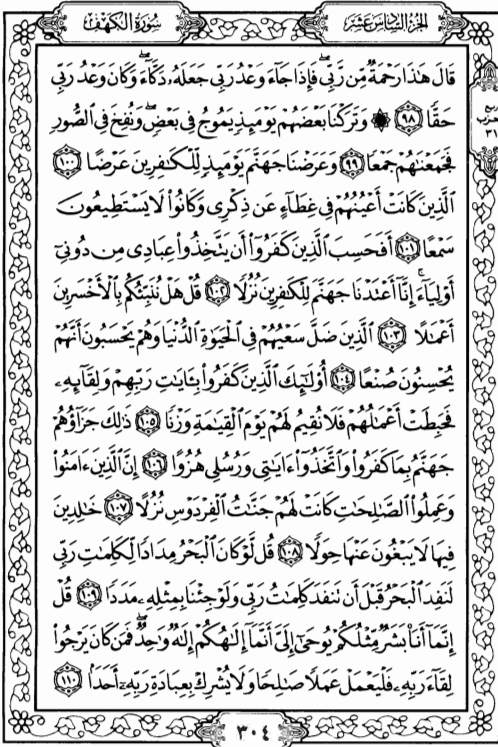 الجزء السادس عشر
سورة الكهف
قَالَ هَٰذَا رَحْمَةٌ مِّن رَّبِّي فَإِذَا جَآءَ وَعْدُ رَبِّي جَعَلَهُۥ دَكَّآءَ وَكَانَ وَعْدُ رَبِّي
حَقًّا ٩٨ ۞ وَتَرَكْنَا بَعْضَهُمْ يَوْمَئِذٍ يَمُوجُ فِي بَعْضٍ وَنُفِخَ فِي ٱلصُّورِ
فَجَمَعْنَٰهُمْ جَمْعًا ٩٩ وَعَرَضْنَا جَهَنَّمَ يَوْمَئِذٍ لِّلْكَٰفِرِينَ عَرْضًا ١٠٠
ٱلَّذِينَ كَانَتْ أَعْيُنُهُمْ فِي غِطَآءٍ عَن ذِكْرِي وَكَانُوا۟ لَا يَسْتَطِيعُونَ
سَمْعًا ١٠١ أَفَحَسِبَ ٱلَّذِينَ كَفَرُوٓا۟ أَن يَتَّخِذُوا۟ عِبَادِي مِن دُونِيٓ
أَوْلِيَآءَ إِنَّآ أَعْتَدْنَا جَهَنَّمَ لِلْكَٰفِرِينَ نُزُلًا ١٠٢ قُلْ هَلْ نُنَبِّئُكُم بِٱلْأَخْسَرِينَ
أَعْمَٰلًا ١٠٣ ٱلَّذِينَ ضَلَّ سَعْيُهُمْ فِي ٱلْحَيَوٰةِ ٱلدُّنْيَا وَهُمْ يَحْسَبُونَ أَنَّهُمْ
يُحْسِنُونَ صُنْعًا ١٠٤ أُو۟لَٰٓئِكَ ٱلَّذِينَ كَفَرُوا۟ بِـَٔايَٰتِ رَبِّهِمْ وَلِقَآئِهِۦ
فَحَبِطَتْ أَعْمَٰلُهُمْ فَلَا نُقِيمُ لَهُمْ يَوْمَ ٱلْقِيَٰمَةِ وَزْنًا ١٠٥ ذَٰلِكَ جَزَآؤُهُمْ
جَهَنَّمُ بِمَا كَفَرُوا۟ وَٱتَّخَذُوٓا۟ ءَايَٰتِي وَرُسُلِي هُزُوًا ١٠٦ إِنَّ ٱلَّذِينَ ءَامَنُوا۟
وَعَمِلُوا۟ ٱلصَّٰلِحَٰتِ كَانَتْ لَهُمْ جَنَّٰتُ ٱلْفِرْدَوْسِ نُزُلًا ١٠٧ خَٰلِدِينَ
فِيهَا لَا يَبْغُونَ عَنْهَا حِوَلًا ١٠٨ قُل لَّوْ كَانَ ٱلْبَحْرُ مِدَادًا لِّكَلِمَٰتِ رَبِّي
لَنَفِدَ ٱلْبَحْرُ قَبْلَ أَن تَنفَدَ كَلِمَٰتُ رَبِّي وَلَوْ جِئْنَا بِمِثْلِهِۦ مَدَدًا ١٠٩ قُلْ
إِنَّمَآ أَنَا۠ بَشَرٌ مِّثْلُكُمْ يُوحَىٰٓ إِلَيَّ أَنَّمَآ إِلَٰهُكُمْ إِلَٰهٌ وَٰحِدٌ فَمَن كَانَ يَرْجُوا۟
لِقَآءَ رَبِّهِۦ فَلْيَعْمَلْ عَمَلًا صَٰلِحًا وَلَا يُشْرِكْ بِعِبَادَةِ رَبِّهِۦٓ أَحَدًۢا ١١٠
ربع
حزب
٣١
٣٠٤